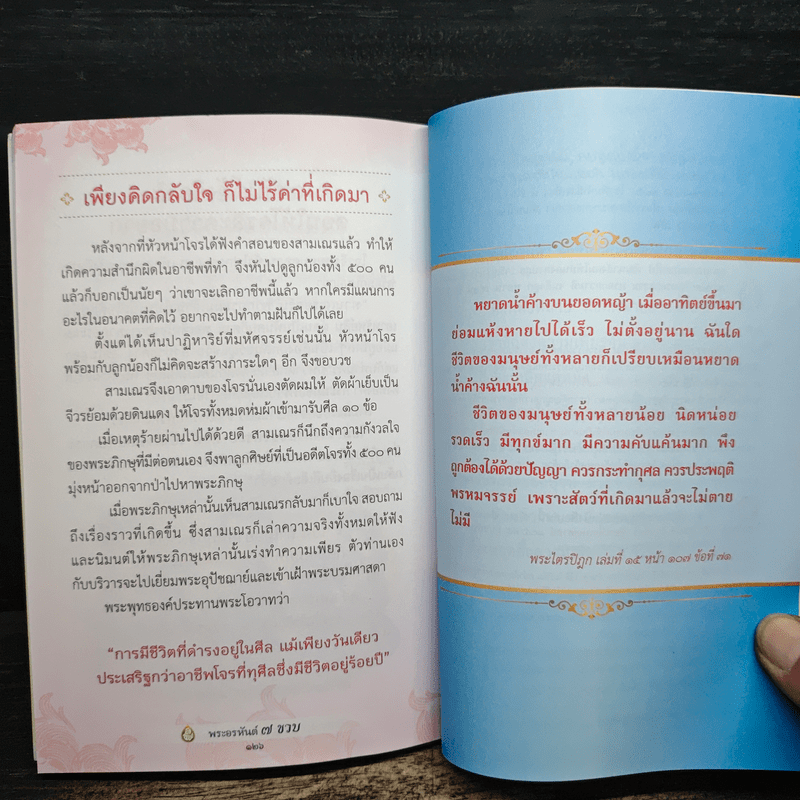 เพียงคิดกลับใจ ก็ไม่ไร้ค่าที่เกิดมา
หลังจากที่หัวหน้าโจรได้ฟังคำสอนของสามเณรแล้ว ทำให้
เกิดความสำนึกผิดในอาชีพที่ทำ จึงหันไปดูลูกน้องทั้ง ๕๐๐ คน
แล้วก็บอกเป็นนัยๆ ว่าเขาจะเลิกอาชีพนี้แล้ว หากใครมีแผนการ
อะไรในอนาคตที่คิดไว้ อยากจะไปทำตามฝันก็ไปได้เลย
ตั้งแต่ได้เห็นปาฏิหาริย์ที่มหัศจรรย์เช่นนั้น หัวหน้าโจร
พร้อมกับลูกน้องก็ไม่คิดจะสร้างภาระใดๆ อีก จึงขอบวช
สามเณรจึงเอาดาบของโจรนั่นเองตัดผมให้ ตัดผ้าเย็บเป็น
จีวรย้อมด้วยดินแดง ให้โจรทั้งหมดห่มผ้าเข้ามารับศีล ๑๐ ข้อ
เมื่อเหตุร้ายผ่านไปได้ด้วยดี สามเณรก็นึกถึงความกังวลใจ
ของพระภิกษุที่มีต่อตนเอง จึงพาลูกศิษย์ที่เป็นอดีตโจรทั้ง ๕๐๐ คน
มุ่งหน้าออกจากป่าไปหาพระภิกษุ
เมื่อพระภิกษุเหล่านั้นเห็นสามเณรกลับมาก็เบาใจ สอบถาม
ถึงเรื่องราวที่เกิดขึ้น ซึ่งสามเณรก็เล่าความจริงทั้งหมดให้ฟัง
และนิมนต์ให้พระภิกษุเหล่านั้นเร่งทำความเพียร ตัวท่านเอง
กับบริวารจะไปเยี่ยมพระอุปัชฌาย์และเข้าเฝ้าพระบรมศาสดา
พระพุทธองค์ประทานพระโอวาทว่า
“การมีชีวิตที่ดำรงอยู่ในศีล แม้เพียงวันเดียว
ประเสริฐกว่าอาชีพโจรที่ทุศีลซึ่งมีชีวิตอยู่ร้อยปี”
พระอรหันต์ ๗ ขวบ
๑๒๖
หยาดน้ำค้างบนยอดหญ้า เมื่ออาทิตย์ขึ้นมา
ย่อมแห้งหายไปได้เร็ว ไม่ตั้งอยู่นาน ฉันใด
ชีวิตของมนุษย์ทั้งหลายก็เปรียบเหมือนหยาด
น้ำค้างฉันนั้น
ชีวิตของมนุษย์ทั้งหลายน้อย นิดหน่อย
รวดเร็ว มีทุกข์มาก มีความคับแค้นมาก พึง
ถูกต้องได้ด้วยปัญญา ควรกระทำกุศล ควรประพฤติ
พรหมจรรย์ เพราะสัตว์ที่เกิดมาแล้วจะไม่ตาย
ไม่มี
พระไตรปิฎก เล่มที่ ๑๕ หน้า ๑๐๗ ข้อที่ ๗๑